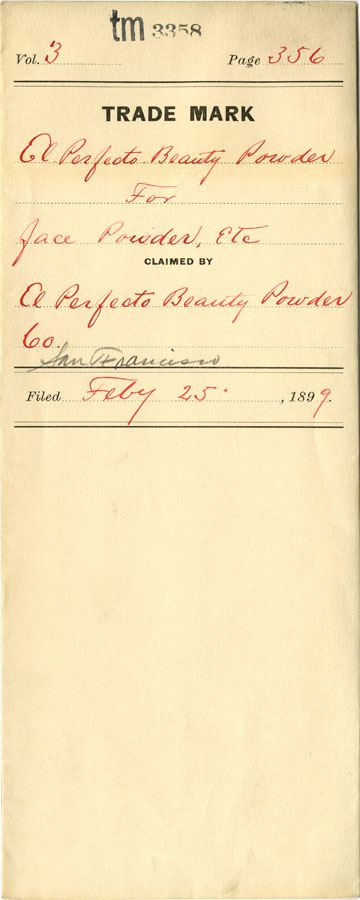 tm 3358
Vol. 3 Page 356
TRADE MARK
El Perfecto Beauty Powder
For
face Powder, Etc
CLAIMED BY
El Perfecto Beauty Powder
Co.
San Francisco
Filed Feby 25 , 1899.